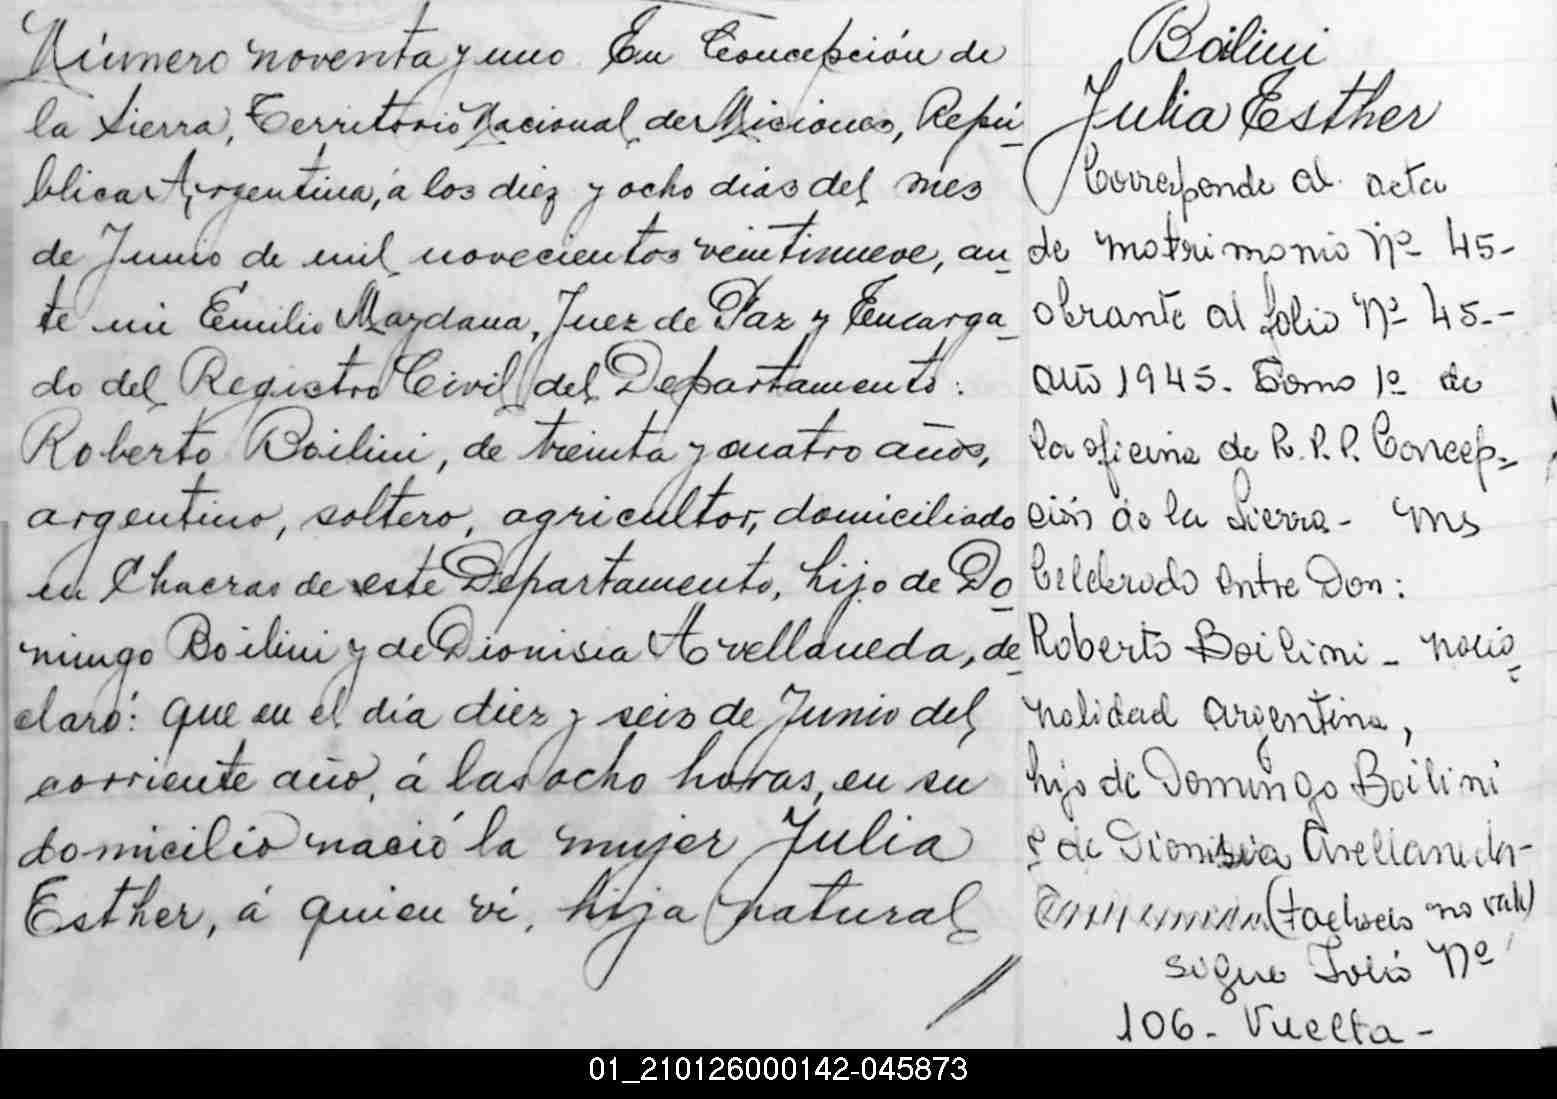 Número noventa y uno. En Concepción de
la Sierra, Territorio Nacional de Misiones, Repú-
blica Argentina, á los diez y ocho dias del mes
de Junio de mil novecientos veintinueve, an-
te mi Emilio Maydana, Juez de Paz y Encarga-
do del Registro Civil del Departamento:
Roberto Boilini, de treinta y cuatro años,
argentino, soltero, agricultor, domiciliado
en Chacras de este Departamento, hijo de Do-
mingo Boilini y de Dionisia Avellaneda, de-
claró: que en el día diez y seis de Junio del
corriente año, á las ocho horas, en su
domicilio nació la mujer Julia
Esther, á quien ví, hija natural
Boilini
Julia Esther
Corresponde al acta
de matrimonio Nº 45-
obrante al folio Nº 45.-
año 1945. Tomo 1º de
la oficina de R.P.P. Concep-
ción de la Sierra - Mns
Celebrado entre Don:
Roberto Boilini - nacio-
nalidad argentina,
hijo de Domingo Boilini
y de Dionisia Avellaneda-
(tachado no vale)
sigue Folio Nº
106 - Vuelta -
01_210126000142-045873